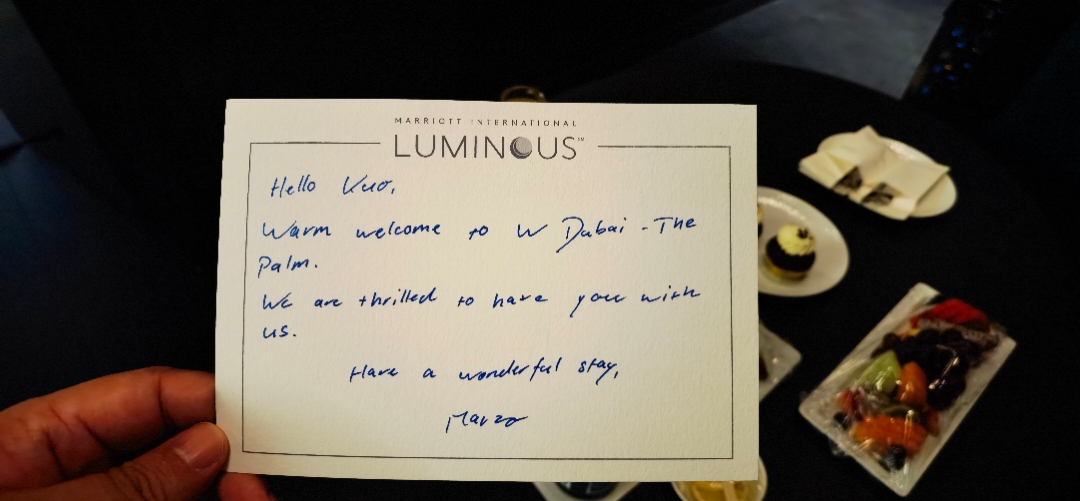 MARRIOTT INTERNATIONAL
LUMINOUS™
Hello Kuo,
Warm welcome to W Dubai - The
Palm.
We are thrilled to have you with
us.
Have a wonderful stay,
Marzo